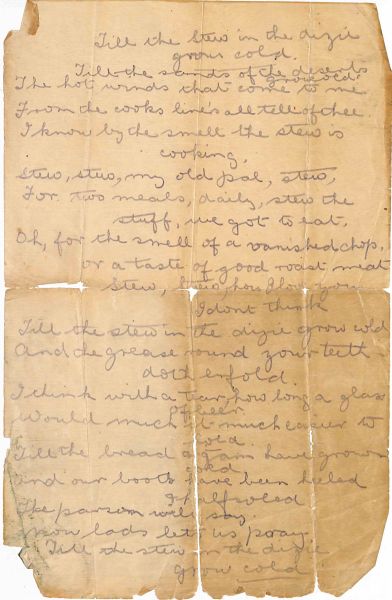 Till the Stew in the dizie
grow cold.
Till the sands of the deserts
grow cold
The hot winds that come to me
From the cooks line's all tell of thee
I know by the smell the stew is
cooking,
Stew, stew, my old pal, stew,
For two meals, daily, stew the
stuff, we got to eat,
Oh, for the smell of a vanished chop,
or a taste of good roast meat
Stew, Stew, how I love you
I dont think
Till the stew in the dizie grow cold
And the grease round your teeth
doth enfold.
I think with a tear, how long a glass
of beer
Would much it much easier to
cold.
Till the bread & jam have grown
old
and our boots have been heeled
& half soled
The parson will say.
now lads let us pray.
Till the stew in the dizie
grow cold